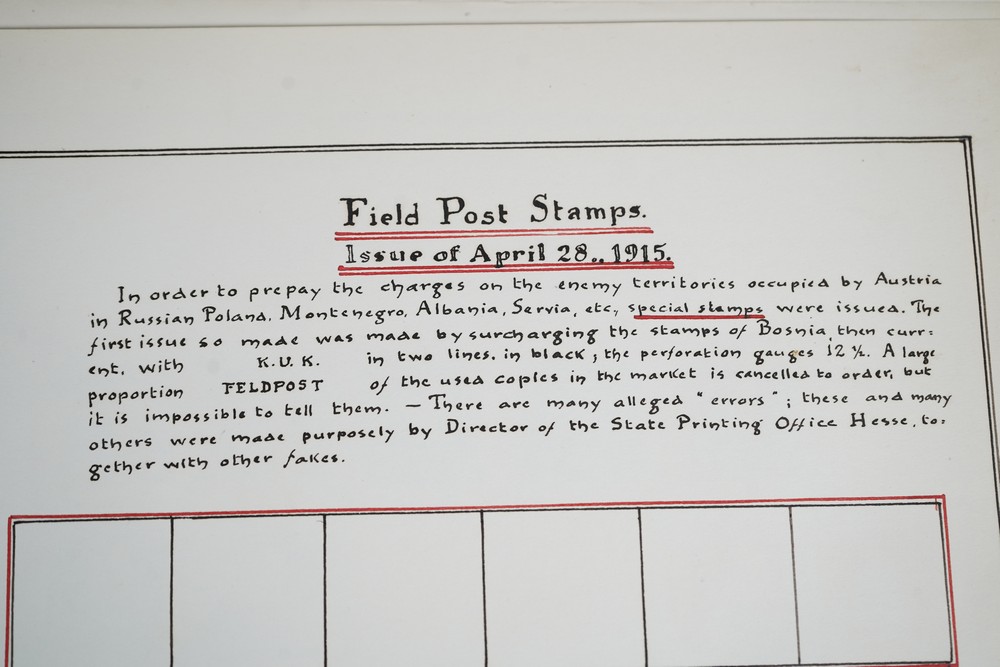 Field Post Stamps.
Issue of April 28., 1915.
In order to prepay the charges on the enemy territories occupied by Austria
in Russian Poland, Montenegro, Albania, Servia, etc, special stamps were issued. The
first issue so made was made by surcharging the stamps of Bosnia, then curr=
ent, with K.U.K. in two lines, in black; the perforation gauges 12 ½. A large
proportion FELDPOST of the used copies in the market is cancelled to order, but
it is impossible to tell them. — There are many alleged "errors"; these and many
others were made purposely by Director of the State Printing Office Hesse, to=
gether with other fakes.